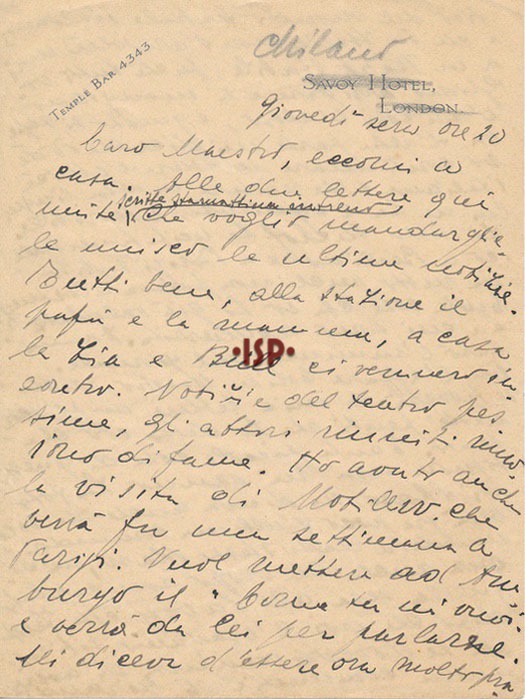 Milano
TEMPLE BAR 4343
SAVOY HOTEL,
LONDON.
Giovedì sera ore 20
Caro Maestro, eccomi a
casa. Alle due lettere qui
scritte stamattina in treno,
unite che voglio mandarglie-
le unisco le ultime notizie.
Tutti bene, alla stazione il
papà e la mamma, a casa
la Zia e ci vennero in-
contro. Notizie del teatro pes
sime, gli attori riuniti muo-
iono di fame. Ho avuto anche
la visita di che
verrà fra una settimana a
Parigi. Vuol mettere ad Am
burgo il "Come tu mi vuoi"
e verrà da Lei per parlarne.
Mi diceva d'essere ora molto pra
·ISP·